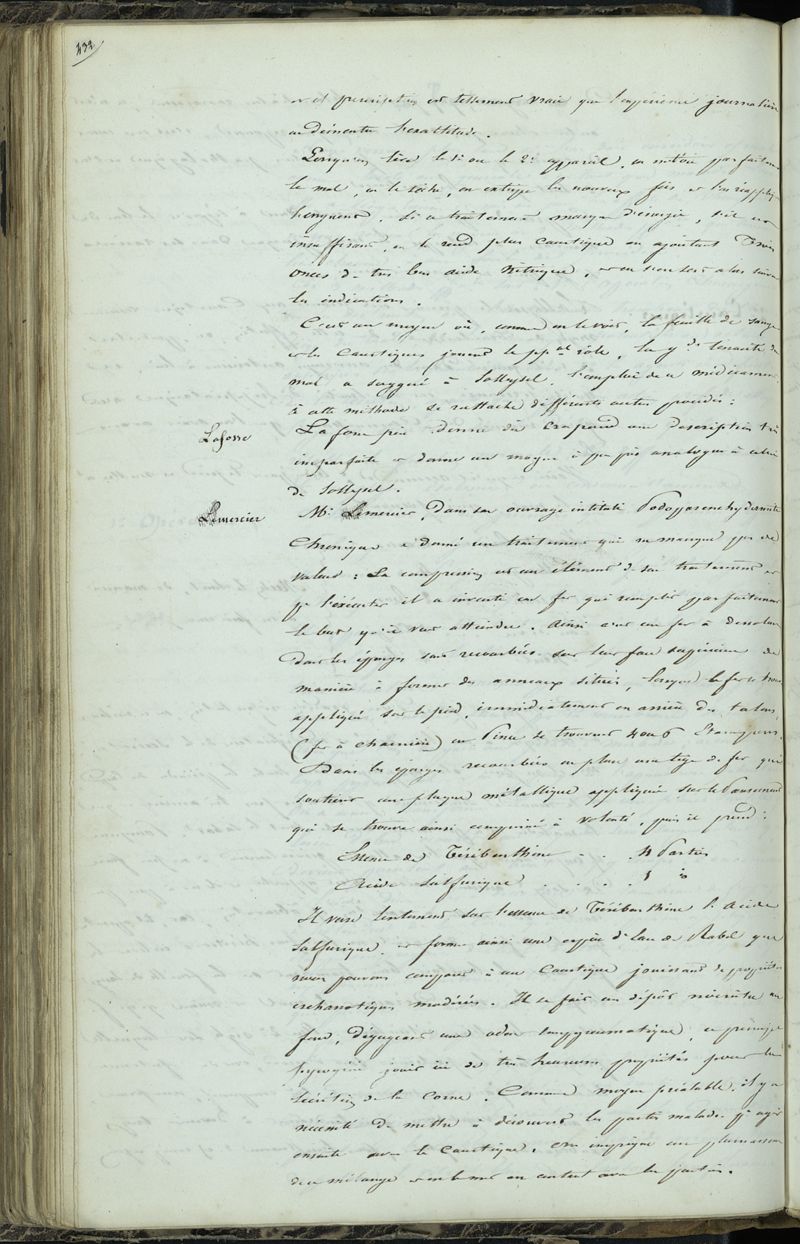 434.
et prescription est tellement vraie que l'expérience journalière
en démontre l'exactitude.
Lorsqu'on lève le 1er ou le 2e appareil, on nettoie parfaitement
le mal, on le sèche, on extirpe les nouveaux fics et l'on réapplique
l'onguent. Si ce traitement manque d'énergie, s'il est
insuffisant, on le rend plus caustique en ajoutant trois
onces de très bon acide nitrique, et on s'en sert alors suivant
les indications.
C'est un moyen où, comme on le voit, la feuille de sauge
et les caustiques jouent le ppal rôle, la gde tenacité du
mal a suggéré à Solleysel l'emploi de ce médicament
à cette méthode se rattache différents autres procédés :
Lafosse
Lafosse père donne du crapaud une description très
imparfaite et donne un moyen à peu près analogue à celui
de Solleysel.
Lemercier
Mr Lemercier, dans son ouvrage intitulé Podoparenchydermite
Chronique a donné un traitement qui ne manque pas de
valeur : La compression est un élément de son traitement et
pr l'exécuter il a inventé un fer qui remplit parfaitement
le but qu'il veut atteindre. Ainsi c'est un fer à dessolure
dont les éponges sont recourbées sur leur face supérieure de
manière à former des anneaux situés, lorsque le fer se trouve
appliqué sur le pied, immédiatement en arrière des talons,
(fer à charnière) en pince se trouvent 4 ou 6 étampures.
Dans les éponges recourbées on place une tige de fer qui
soutient une plaque métallique appliquée sur le pansement
qui se trouve ainsi comprimé à volonté, puis il prend :
Essence de Térébenthine . . . 4 Parties
Acide sulfurique . . . . 1 id
Il verse lentement sur l'essence de Térébenthine l'acide
sulfurique, et forme ainsi une espèce d'Eau de Rabel que
nous pouvons comparer à un Caustique jouissant de propriétés
escharotiques modérées. Il se fait un dépôt noirâtre au
fond, dégageant une odeur empyreumatique, ce principe
pyrogéné jouit ici de très heureuses propriétés pour la
sécrétion de la Corne. Comme moyen préalable, il y a
nécessité de mettre à découvert les parties malades pr agir
ensuite avec le Caustique. On imprègne un plumasseau
de ce mélange et on le met en contact avec les parties.